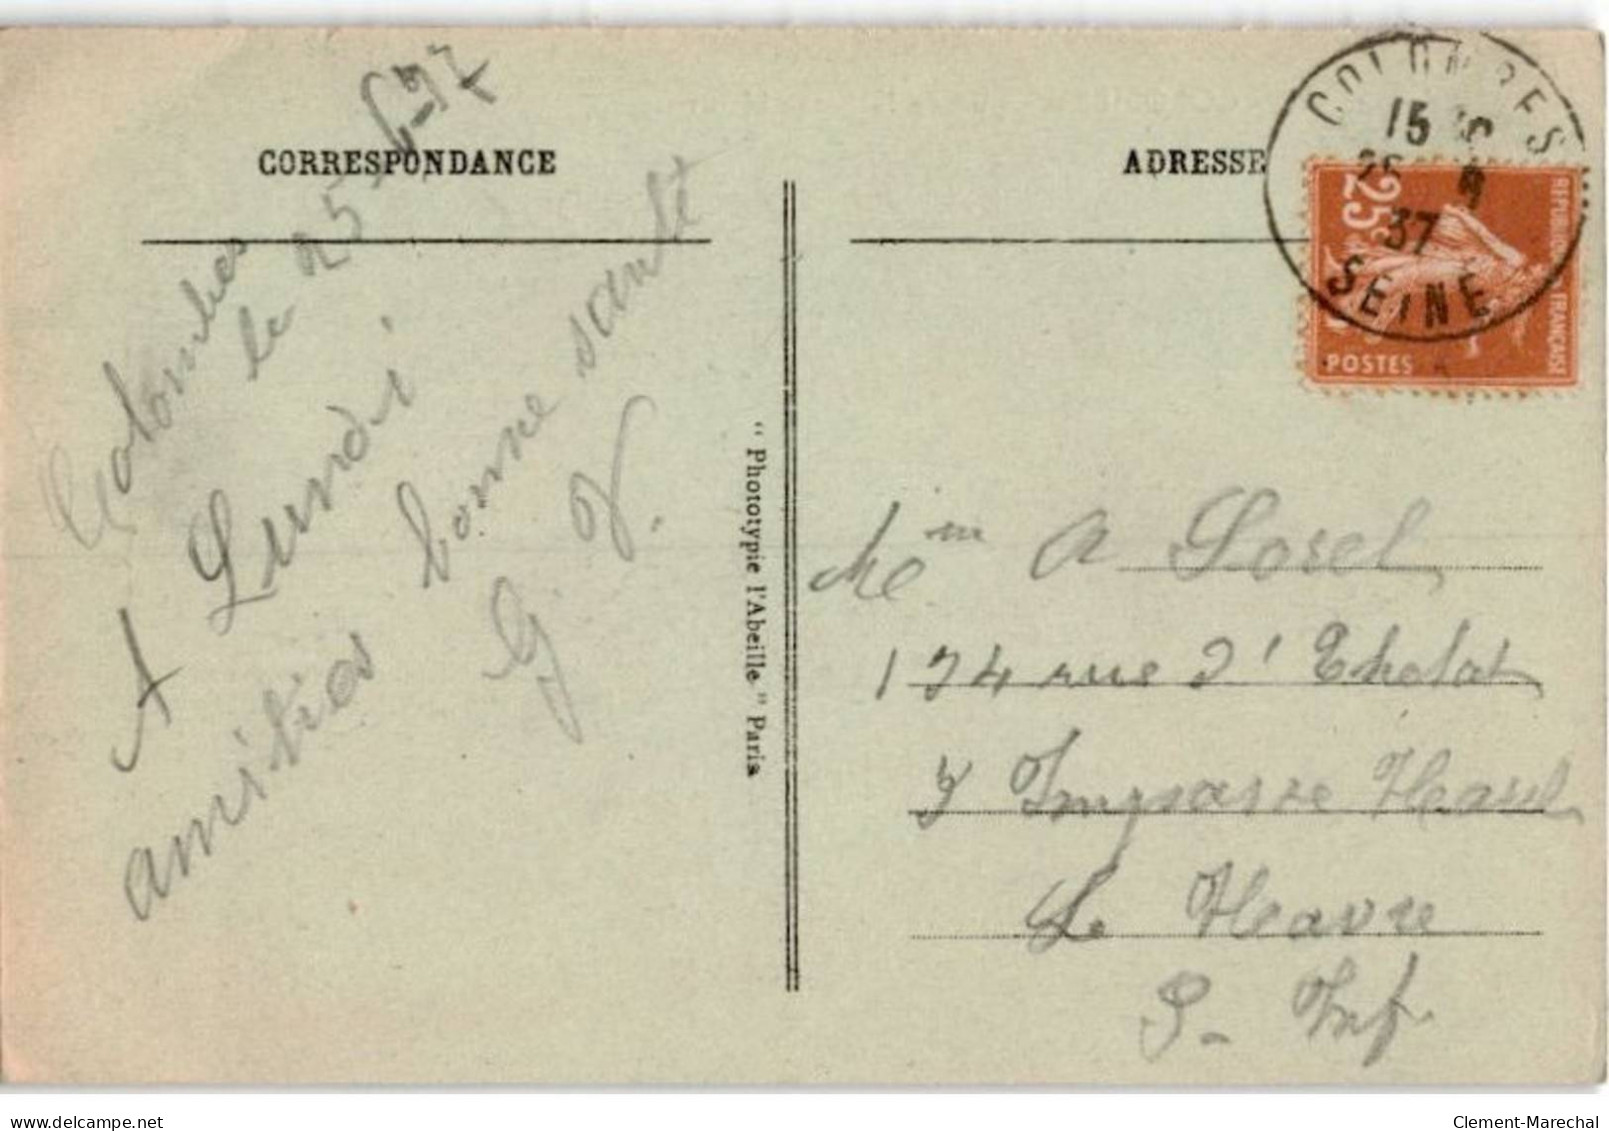 CORRESPONDANCE
ADRESSE
Colombes
le 25-6-37
A Lundi
amitiés bonne santé
G. V.
"Phototypie l'Abeille" Paris
COLOMBES
15
25
37
SEINE
25c
REPUBLIQUE FRANÇAISE
POSTES
Mme A Sorel
174 rue d'Etretat
Impasse
Le Havre
S. Inf.
delcampe.net
Clement-Marechal